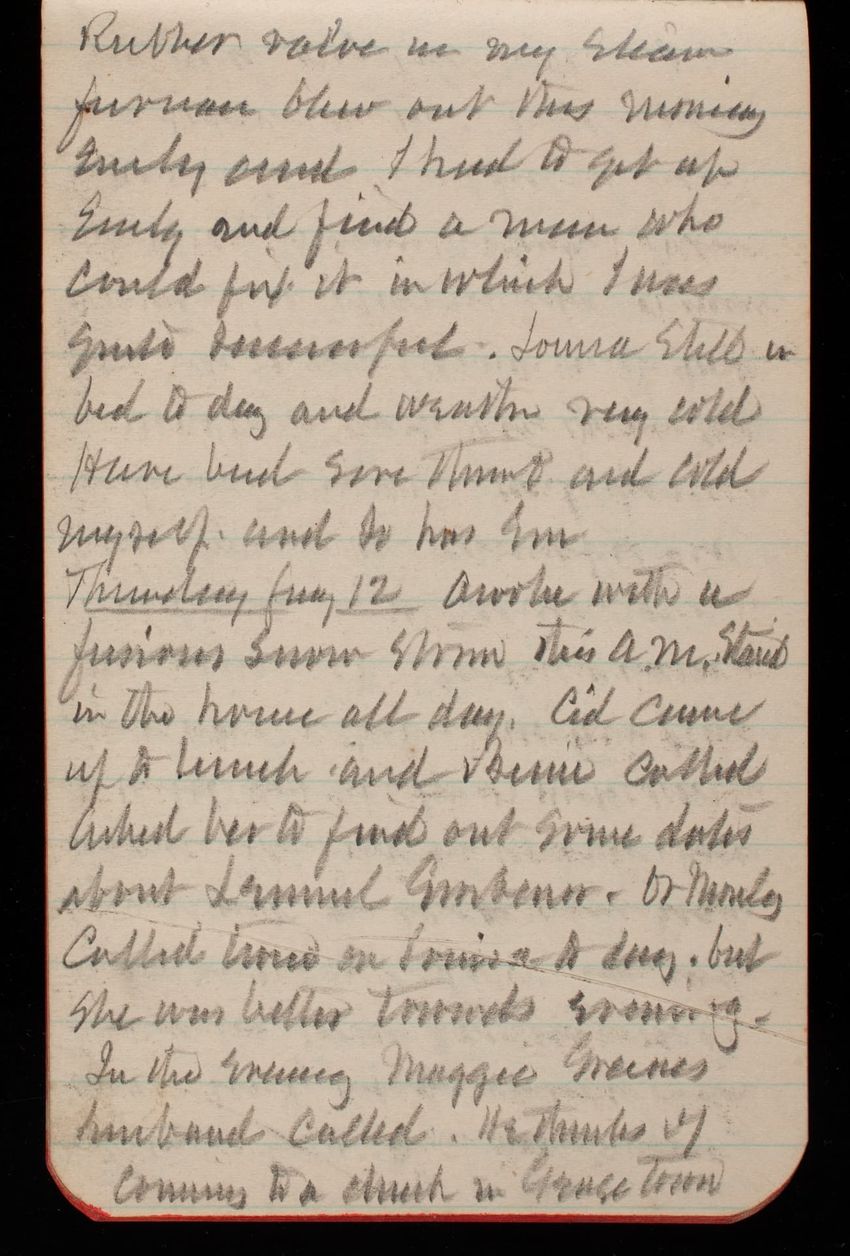 Rubber valve in my Steam
furnace blew out this morning
Early and I had to get up
Early and find a man who
could fix it in which I was
quite successful. Louisa Still in
bed to day and weather very cold
Have bad sore throat and cold
myself and so has Em
Thursday Jany 12 Awoke with a
furious snow storm this A.M. Staid
in the house all day. Cid came
up to lunch and called
Asked her to find out some dates
about Lemuel Grosvenor. Dr Morely
Called twice on Louisa to day. but
She was better towards evening.
In the evening Maggie Greenes
husband called. He thinks of
coming to a church in George Town